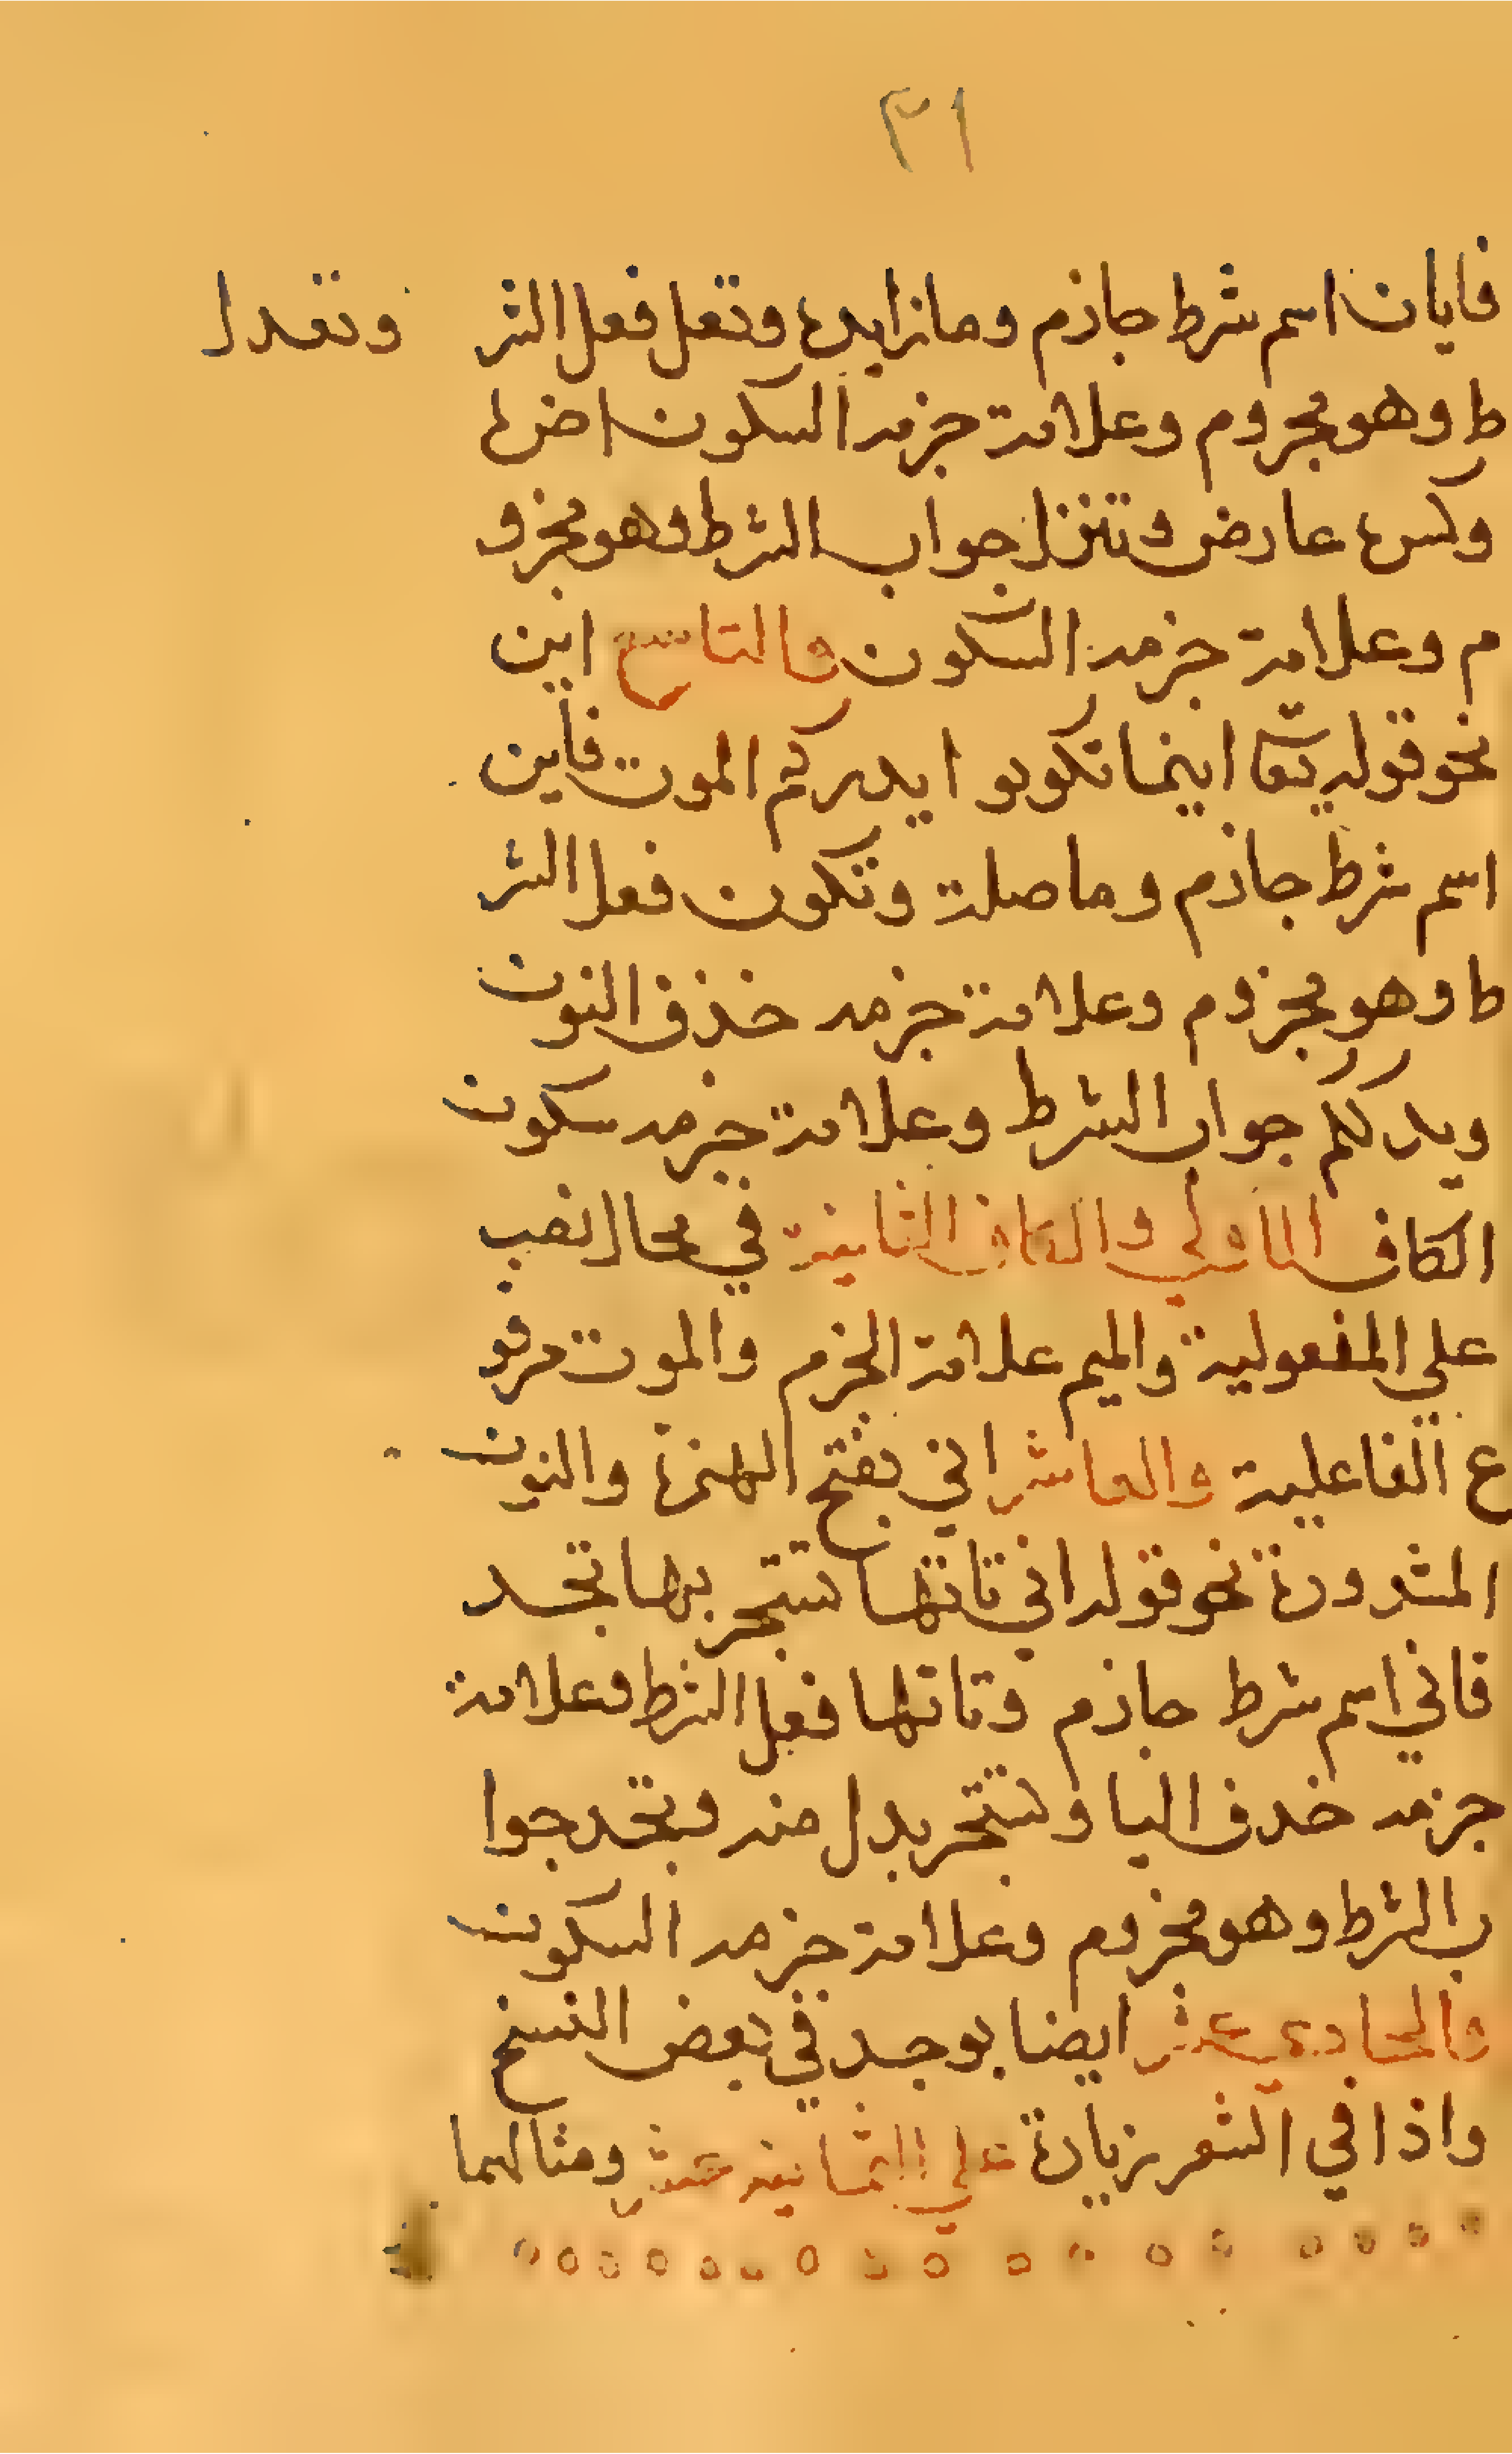 ٣١
فايان اسم شرط جازم وما زايده وتعل فعل الشر وتعدل
ط وهو مجزوم وعلامة جزمه السكون اضه
وكسه عارض وتنزل جواب الشرط وهو مجزو
م وعلامة جزمه السكون والتاسع اين
نحو قوله تعا اينما تكونو ا يدرركم الموت فاين
اسم شرط جازم وما صلة وتكون فعل الشر
ط وهو مجزوم وعلامة جزمه خذف النون
ويدرككم جواب الشرط وعلامة جزمه سكون
الكاف الاولي والكاف الثانية في محال نصب
علي المفعولية والميم علامة الجزم والموت مرفو
ع الفاعلية والعاشر اني بفتح الهمزة والنون
المشدودة نحو قوله اني تاتها تستجر بها تجد
فاني اسم شرط جازم وتاتها فعل الشرط وعلامة
جزمه خدف اليا وتستجر بدل منه وتجد جوا
ب الشرط وهو مجزوم وعلامة جزمه السكون
والحادي عشر ايضا يوجد في بعض النسخ
واذا في الشعر زيادة علي الثمانية عشر ومثالهما